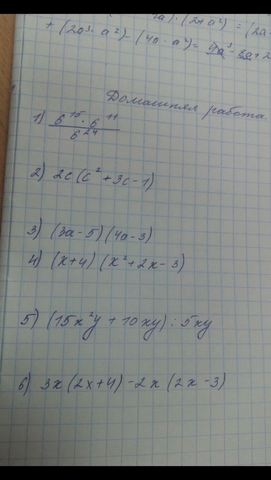 + (2a³ · a²) - (4a · a²) =
Домашняя работа
1) 6¹⁵ · 6¹¹
6²⁴
2) 2c (c² + 3c - 1)
3) (3a - 5) (4a - 3)
4) (x + 4) (x² + 2x - 3)
5) (15x²y + 10xy) : 5xy
6) 3x (2x + 4) - 2x (2x - 3)